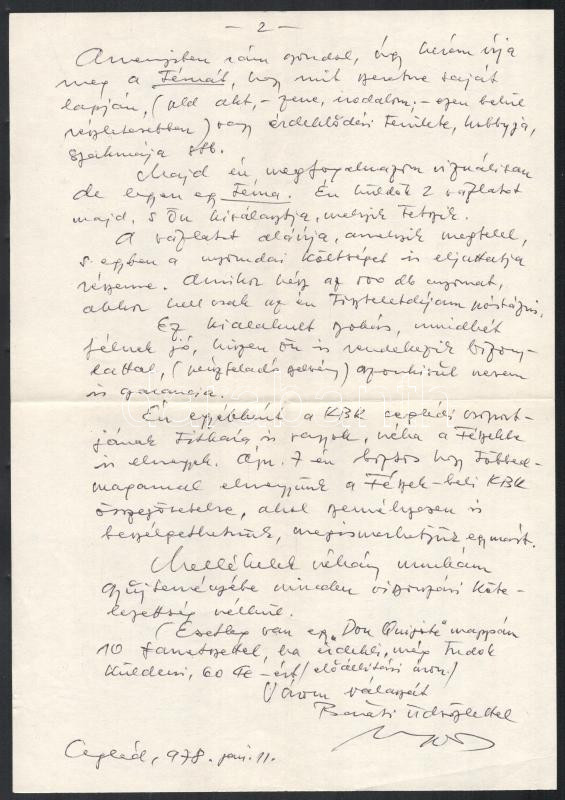 — 2 —
Amennyiben rám gondol, úgy kérem írja
meg a Témát, hogy mit szeretne saját
lapján, (akt, – zene, irodalom, – ezen belül
részletesebben) vagy érdeklődési területe, hobbyja,
szakmája stb.
Majd én megfogalmazom vizuálisan
de legyen egy Téma. Én küldök 2 vázlatot
majd, s Ön kiválasztja, melyik tetszik.
A vázlatot aláírja, amelyik megfelel,
s egyben a nyomdai költséget is eljuttatja
részemre. Amikor kész az 500 db nyomat,
akkor kell csak az én tiszteletdíjam postázni.
Ez kialakult szokás, mindkét
félnek jó, hiszen Ön is rendelkezik bizony-
lattal, (pénzfeladó szelvény) azonkívül nevem
is garancia.
Én egyébként a KBK ceglédi csoport-
jának titkára is vagyok, néha a Fészekbe
is elmegyek. 7-én biztos hogy többed-
magammal elmegyünk a Fészek-beli KBK
összejövetelre, ahol személyesen is
beszélgethetünk, megismerhetjük egymást.
Mellékelek néhány munkám
gyűjteményébe minden viszonzási köte-
lezettség nélkül.
(Esetleg van egy „Don Quijote" mappám
10 fametszettel, ha érdekli, még tudok
küldeni, 60 Ft-ért / előállítási áron./)
Várom válaszát
Baráti üdvözlettel
Cegléd, 978. jan. 11.